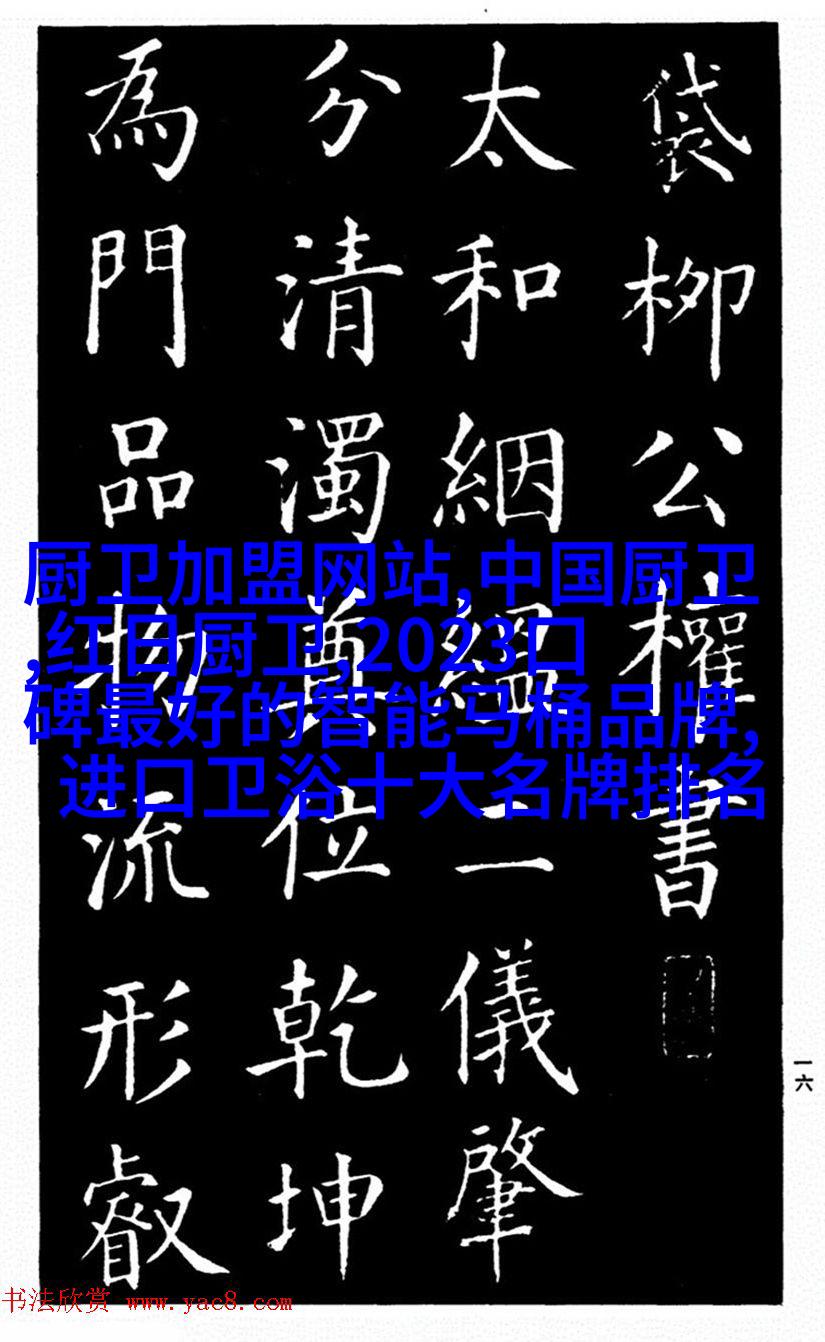 袋柳公權書
太和絪縕二儀肇
分清濁奠位乾坤
為門品物流形叡
厨卫加盟网站,中国厨卫
,红日厨卫,2023口
碑最好的智能马桶品牌,
进口卫浴十大名牌排名
一六
书法欣赏 www.yac8.com